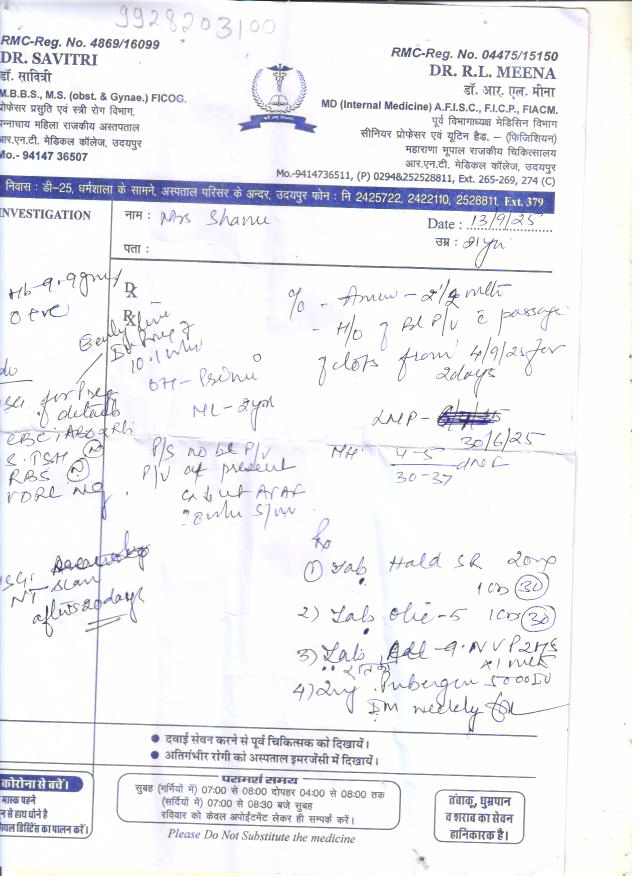 9928203100
RMC-Reg. No. 4869/16099
DR. SAVITRI
डॉ. सावित्री
M.B.B.S., M.S. (obst. & Gynae.) FICOG.
प्रोफेसर प्रसुति एवं स्त्री रोग विभाग,
पन्नाधाय महिला राजकीय अस्पताल
आर.एन.टी. मेडिकल कॉलेज, उदयपुर
Mo.- 94147 36507
RMC-Reg. No. 04475/15150
DR. R.L. MEENA
डॉ. आर. एल. मीना
MD (Internal Medicine) A.F.I.S.C., F.I.C.P., FIACM.
पूर्व विभागाध्यक्ष मेडिसिन विभाग
सीनियर प्रोफेसर एवं यूटिन हैड. – (फिजिशियन)
महाराणा भूपाल राजकीय चिकित्सालय
आर.एन.टी. मेडिकल कॉलेज, उदयपुर
Mo.-9414736511, (P) 0294&252528811, Ext. 265-269, 274 (C)
निवास : डी-25, धर्मशाला के सामने, अस्पताल परिसर के अन्दर, उदयपुर फोन : नि 2425722, 2422110, 2528811, Ext. 379
INVESTIGATION
नाम : Mrs Shanu
Date : 13/9/25
पता :
उम्र : 21 yr
Hb-9.9gm%
O +ve
Early live
10.1 wks
for Preg
details
CBC, ABO & Rh
S. TSH (N)
RBS (N)
VDRL Neg
NT scan
after 20 days
Dx
Rx
OH - Primi
ML - 2yrs
P/S no bl P/V
P/V at present
c/o - Amen - 2 1/2 mth
- H/O of Bl P/V c passage
of clots from 4/9/25 for
2 days
LMP -
30/6/25
MH: 4-5
30-37
Rx
1) Tab Hald SR 20mg
1 OD (30)
2) Tab Olic-5 1 OD (30)
3) Tab NVP 2HS
x1 mth
4) Inj. Pubergen 5000 IU
IM weekly
दवाई सेवन करने से पूर्व चिकित्सक को दिखायें।
अतिगंभीर रोगी को अस्पताल इमरजेंसी में दिखायें।
कोरोना से बचें।
मास्क पहने
न से हाथ धोने है
का पालन करें।
परामर्श समय
सुबह (गर्मियों में) 07:00 से 08:00 दोपहर 04:00 से 08:00 तक
(सर्दियों में) 07:00 से 08:30 बजे सुबह
रविवार को केवल अपोईटमेंट लेकर ही सम्पर्क करें।
तंबाकू, धुम्रपान
व शराब का सेवन
हानिकारक है।
Please Do Not Substitute the medicine